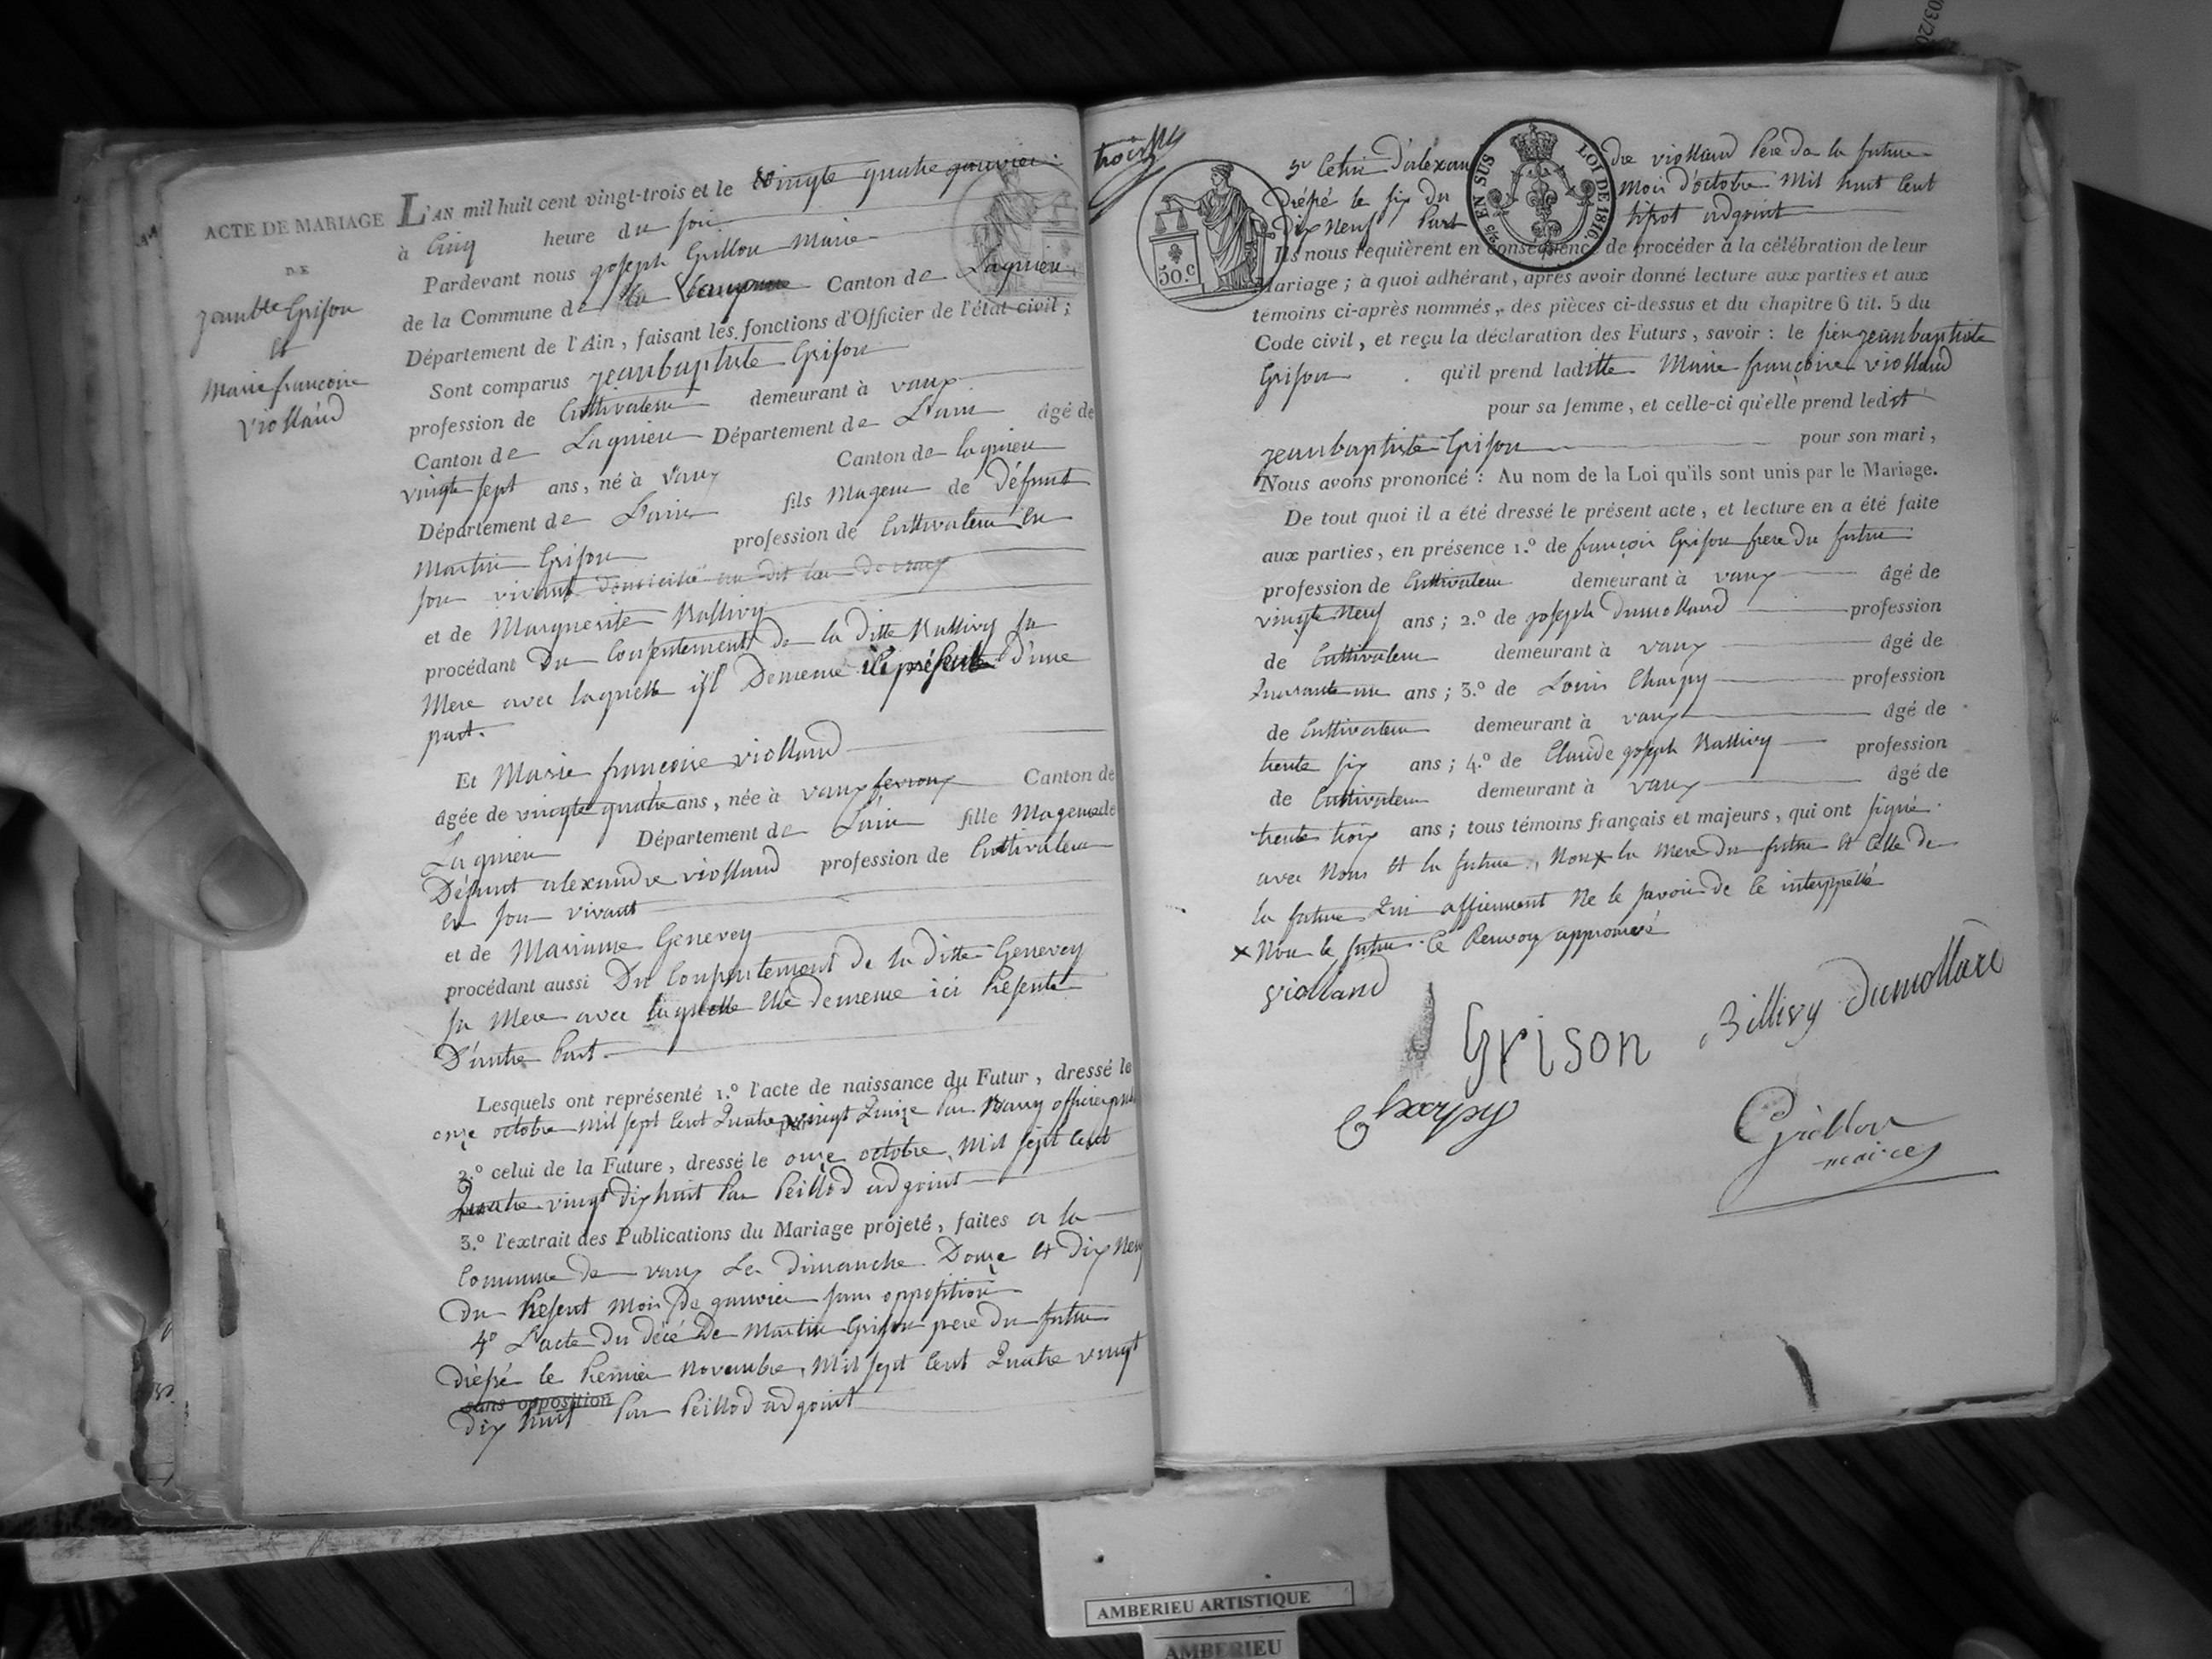 ACTE DE MARIAGE
DE
jean bte Grison
et
Marie françoise
violland
L'AN mil huit cent vingt-trois et le vingte quatre janvier
à Cinq heure du soir
Pardevant nous joseph Grillon Maire
de la Commune de Canton de Lagnieu
Département de l'Ain, faisant les fonctions d'Officier de l'état civil;
Sont comparus jeanbaptiste Grison
profession de Cultivateur demeurant à vaux
Canton de Lagnieu Département de L'ain âgé de
vingte sept ans, né à Vaux Canton de lagnieu
Département de L'ain fils Mageur de Défunt
Martin Grison profession de Cultivateur en
son vivant domicilié au dit lieu de vaux
et de Marguerite Rassivy
procédant Du Consentement de la ditte Rassivy sa
Mere avec laquelle isl Demeure ici présente d'une
part.
Et Marie françoise violland
âgée de vingte quatre ans, née à vaux fevroux Canton de
Lagnieu Département de L'ain fille Mageure de
Défunt alexandre violland profession de Cultivateur
en son vivant
et de Marianne Genevey
procédant aussi Du Consentement de la ditte Genevey
sa Mere avec laquelle elle demeure ici Présente
D'autre Part.
Lesquels ont représenté 1.º l'acte de naissance du Futur, dressé le
onze octobre mil sept Cent Quatre vingt Quinze Par officier
2.º celui de la Future, dressé le onze octobre Mil sept Cent
Quatre vingt dix huit Par Peillod adjoint
3.º l'extrait des Publications du Mariage projeté, faites a la
Commune de vaux Les dimanche Douze et dix Neuf
Du Présent Mois De janvier sans opposition
4º L'acte du décé De Martin Grison pere du futur
dréssé le Premier Novembre Mil sept Cent Quatre vingt
sans opposition
dix huit Par Peillod adjoint
trois
5º Celui d'alexandre violland Pere de la future
Dréssé le six du Mois d'octobre Mil huit Cent
Dix Neuf Part adjoint
5/10 EN SUS LOI DE 1816.
50.C
Ils nous requièrent en conséquence de procéder à la célébration de leur
Mariage; à quoi adhérant, après avoir donné lecture aux parties et aux
témoins ci-après nommés, des pièces ci-dessus et du chapitre 6 tit. 5 du
Code civil, et reçu la déclaration des Futurs, savoir: le sieur jean baptiste
Grison qu'il prend laditte Marie françoise violland
pour sa femme, et celle-ci qu'elle prend ledit
jeanbaptiste Grison pour son mari,
Nous avons prononcé: Au nom de la Loi qu'ils sont unis par le Mariage.
De tout quoi il a été dressé le présent acte, et lecture en a été faite
aux parties, en présence 1.º de françois Grison frere du futur
profession de Cultivateur demeurant à vaux âgé de
vingte Neuf ans; 2.º de joseph Dumolland profession
de Cultivateur demeurant à vaux âgé de
Quarante un ans; 3.º de Louis Charpy profession
de Cultivateur demeurant à vaux âgé de
trente six ans; 4.º de Claude joseph Rassivy profession
de Cultivateur demeurant à vaux âgé de
trente trois ans; tous témoins français et majeurs, qui ont signé
avec Nous et la future, Non x la mere du futur et Celle de
la future Qui affirment Ne le savoir de Ce interppellé
x Non le futur. Ce Renvoy approuvé
violland
Grison
Billivy Dumollard
Charpy
Grillon
maire
AMBERIEU ARTISTIQUE
AMBERIEU